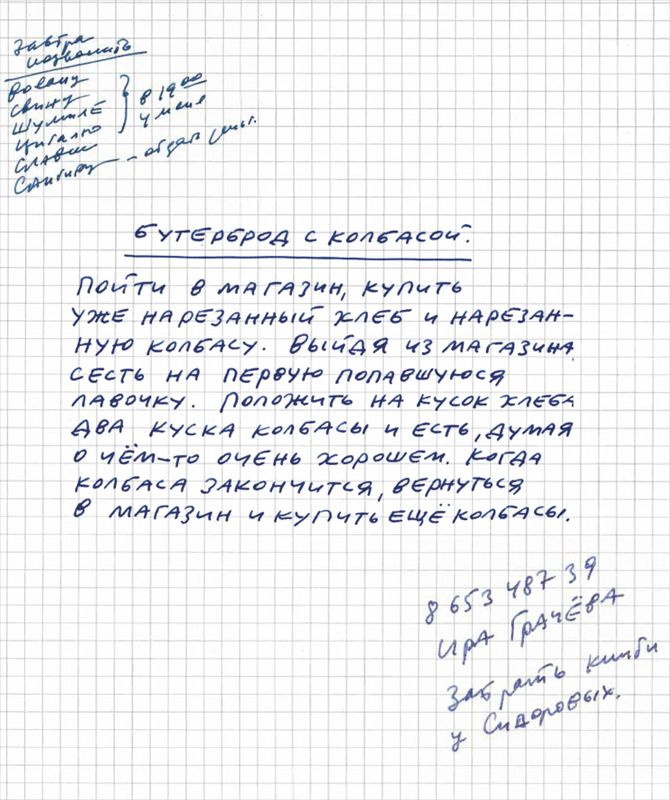 Завтра
позвонить
Вовану
Свину
Шумиле
Цигалю
Славе
в 19 00
у меня
- отдать
БУТЕРБРОД С КОЛБАСОЙ.
ПОЙТИ В МАГАЗИН, КУПИТЬ
УЖЕ НАРЕЗАННЫЙ ХЛЕБ И НАРЕЗАН-
НУЮ КОЛБАСУ. ВЫЙДЯ ИЗ МАГАЗИНА
СЕСТЬ НА ПЕРВУЮ ПОПАВШУЮСЯ
ЛАВОЧКУ. ПОЛОЖИТЬ НА КУСОК ХЛЕБА
ДВА КУСКА КОЛБАСЫ И ЕСТЬ, ДУМАЯ
О ЧЁМ-ТО ОЧЕНЬ ХОРОШЕМ. КОГДА
КОЛБАСА ЗАКОНЧИТСЯ, ВЕРНУТЬСЯ
В МАГАЗИН И КУПИТЬ ЕЩЁ КОЛБАСЫ.
8 653 487 39
Ира Грачёва
Забрать
у Сидоровых.